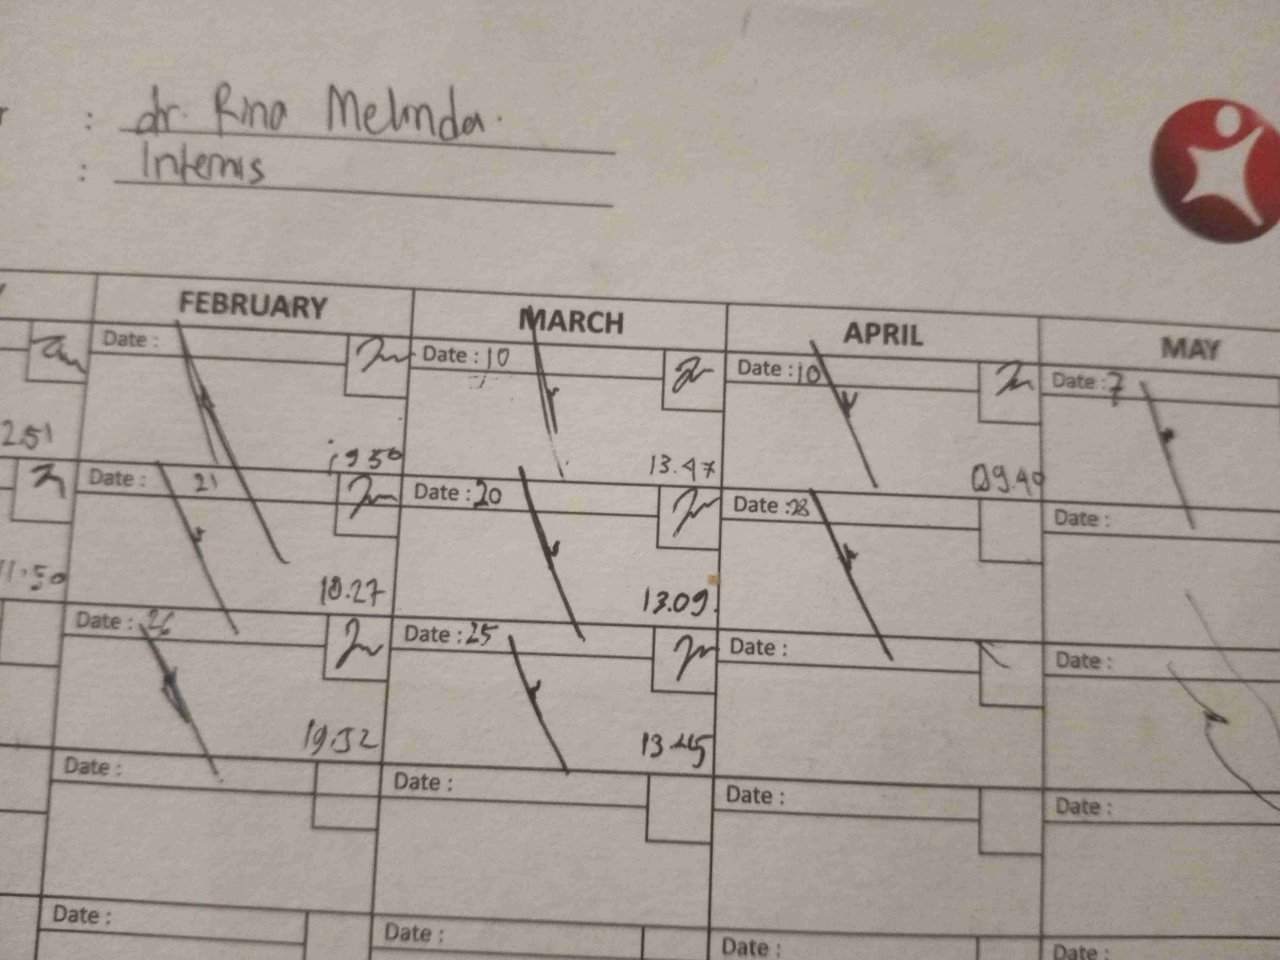 : dr. Rina Melinda.
: Internis
FEBRUARY MARCH APRIL MAY
Date : Date : 10 Date : 10 Date : 7
2.51 19 50 13.47 09.40
Date : 21 Date : 20 Date : 28 Date :
11.50 18.27 13.09
Date : 26 Date : 25 Date : Date :
19.32 13.45
Date : Date : Date : Date :
Date : Date : Date : Date :